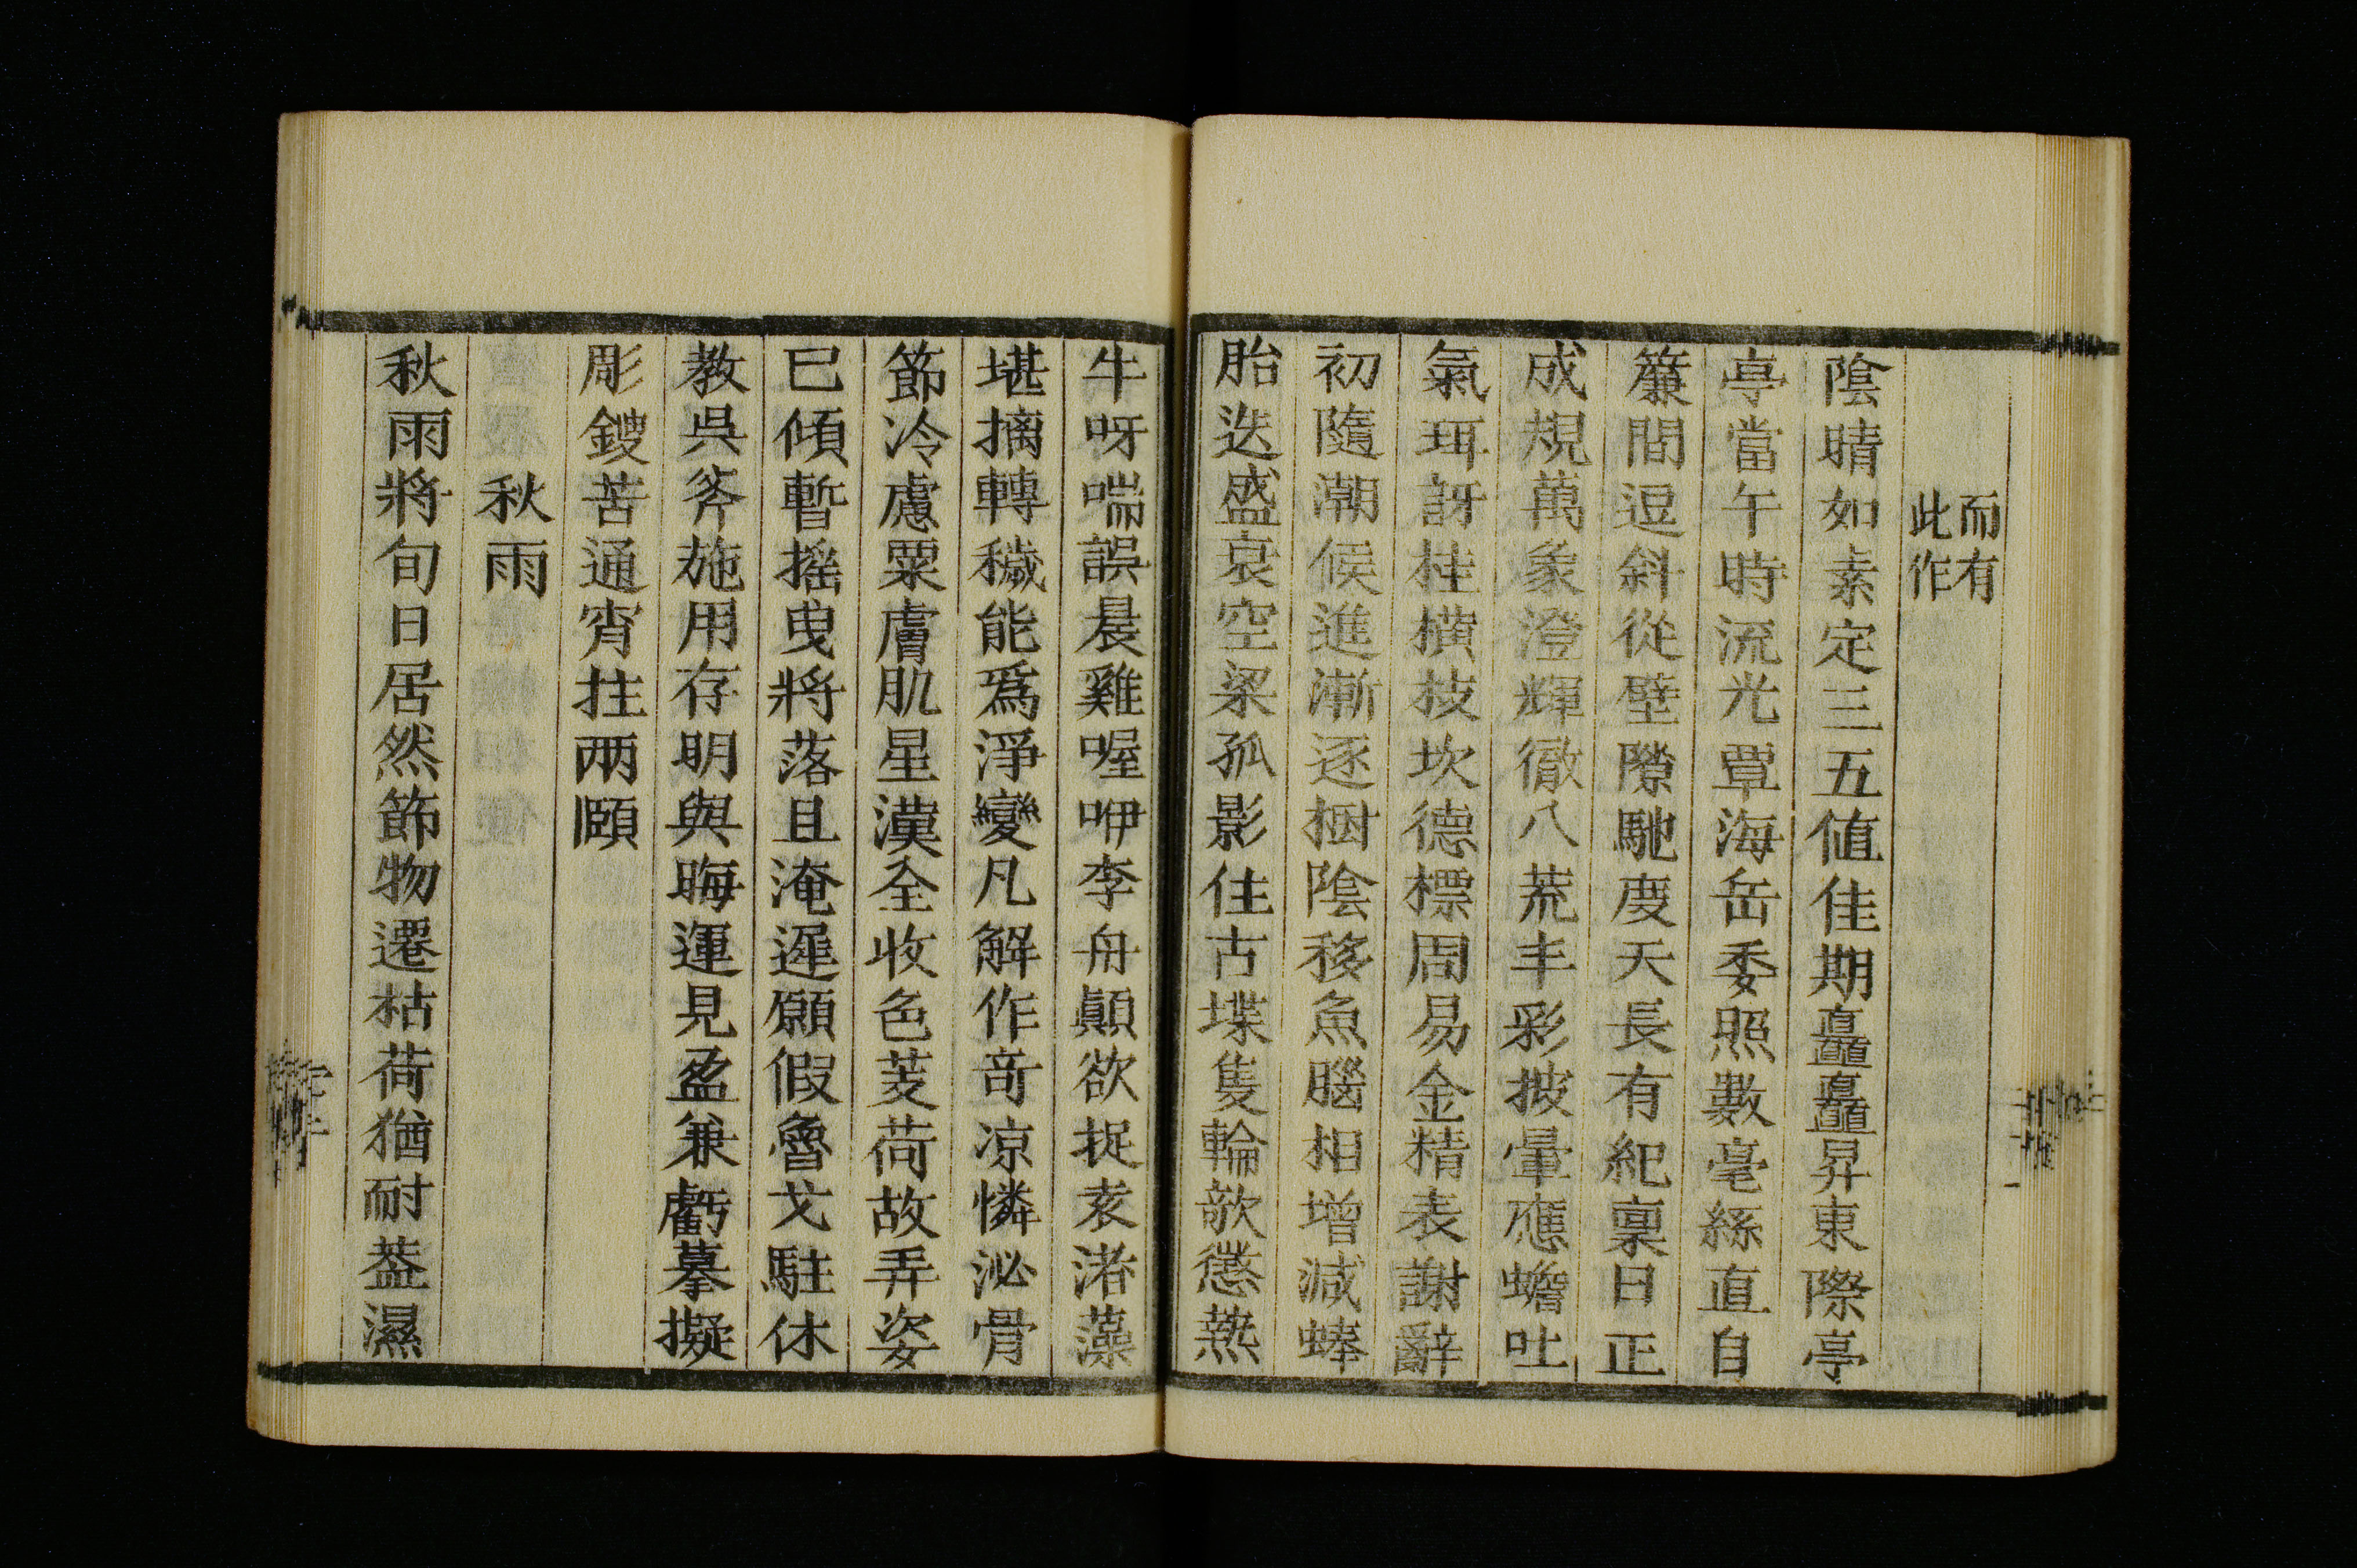 而有
此作
陰晴如素定三五値佳期矗矗昇東際亭
亭當午時流光覃海岳委照數毫絲直自
簾間逗斜從壁隙馳度天長有紀稟日正
成規萬象澄輝徹八荒丰彩披暈應蟾吐
氣珥訝桂橫枝坎德標周易金精表謝辭
初隨潮候進漸逐樹陰移魚腦相增減蜯
胎迭盛衰空梁孤影住古堞隻輪欹懲熱
牛呀喘誤晨雞喔咿李舟顚欲捉袁渚藻
堪摛轉穢能爲淨變凡解作竒凉憐泌骨
節冷慮粟膚肌星漢全收色菱荷故弄姿
已傾暫搖曳將落且淹遲願假魯戈駐休
教吳斧施用存明與晦運見盈兼虧摹擬
彫鎪苦通宵拄兩頤
秋雨
秋雨將旬日居然節物遷枯荷猶耐葢濕